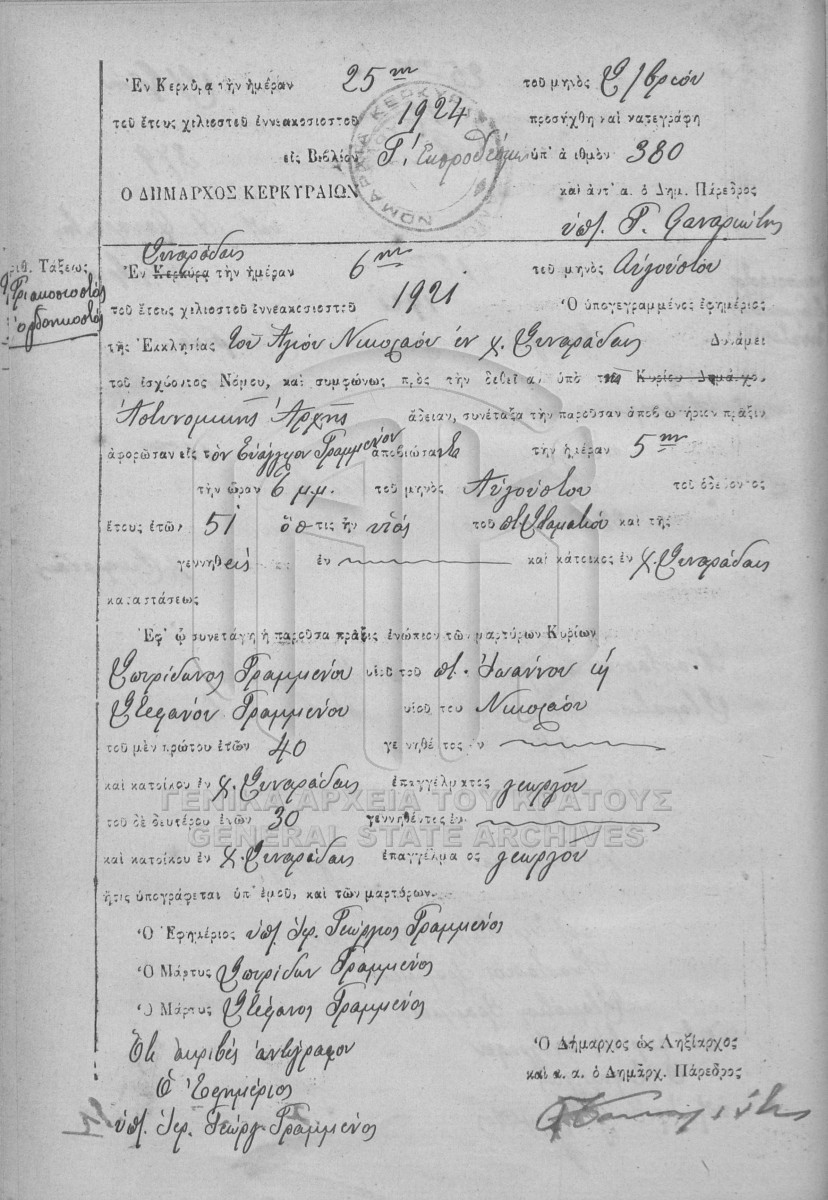 Ἐν Κερκύρᾳ τὴν ἡμέραν 25ην τοῦ μηνὸς 8/βρίου
τοῦ ἔτους χιλιοστοῦ ἐννεακοσιοστοῦ 1924 προσήχθη καὶ κατεγράφη
εἰς Βιβλίον Γ΄. Ἐκπροθέσμων ὑπ' ἀριθμὸν 380
Ο ΔΗΜΑΡΧΟΣ ΚΕΡΚΥΡΑΙΩΝ καὶ ἀντ' α. ὁ Δημ. Πάρεδρος
ὑπ. Γ.
ΝΟΜΑΡΧΙΑ ΚΕΡΚΥΡΑΣ
Συναράδαις
Ἀριθ. Τάξεως Ἐν Κερκύρᾳ τὴν ἡμέραν 6ην τοῦ μηνὸς Αὐγούστου
Τριακοσιοστὸς τοῦ ἔτους χιλιοστοῦ ἐννεακοσιοστοῦ 1921 Ὁ ὑπογεγραμμένος ἐφημέριος
ὀγδοηκοστὸς
τῆς Ἐκκλησίας τοῦ Ἁγίου Νικολάου ἐν χ. Συναράδαις Δυνάμει
τοῦ ἰσχύοντος Νόμου, καὶ συμφώνως πρὸς τὴν δοθεῖσαν ὑπὸ τῆς Κυρίου Δημάρχου
Ἀστυνομικῆς Ἀρχῆς ἄδειαν, συνέταξα τὴν παροῦσαν ἀποβιωτήριον πρᾶξιν
ἀφορῶσαν εἰς τὸν Εὐάγγελον Γραμμένον ἀποβιώσαντα τὴν ἡμέραν 5ην
τὴν ὥραν 6 μ.μ. τοῦ μηνὸς Αὐγούστου τοῦ ὁδεύοντος
ἔτους ἐτῶν 51 ὅστις ἦν υἱὸς τοῦ π. Σταματίου καὶ τῆς
γεννηθεὶς ἐν καὶ κάτοικος ἐν χ. Συναράδαις
καταστάσεως
Ἐφ' ᾧ συνετάγη ἡ παροῦσα πρᾶξις ἐνώπιον τῶν μαρτύρων Κυρίων
Σπυρίδωνος Γραμμένου υἱοῦ τοῦ π. Ἰωάννου κ
Στεφάνου Γραμμένου υἱοῦ του Νικολάου
τοῦ μὲν πρώτου ἐτῶν 40 γεννηθέντος ἐν
καὶ κατοίκου ἐν χ. Συναράδαις ἐπαγγέλματος γεωργοῦ
τοῦ δὲ δευτέρου ἐτῶν 30 γεννηθέντος ἐν
καὶ κατοίκου ἐν χ. Συναράδαις ἐπαγγέλματος γεωργοῦ
ἥτις ὑπογράφεται ὑπ' ἐμοῦ, καὶ τῶν μαρτύρων.
Ὁ Ἐφημέριος ὑπ. Ἱερ. Γεώργιος Γραμμένος
Ὁ Μάρτυς Σπυρίδων Γραμμένος
Ὁ Μάρτυς Στέφανος Γραμμένος
Ὅτι ἀκριβὲς ἀντίγραφον
Ὁ Ἐφημέριος
ὑπ. Ἱερ. Γεώργ. Γραμμένος
Ὁ Δήμαρχος ὡς Ληξίαρχος
καὶ α. α. ὁ Δημαρχ. Πάρεδρος
ΓΕΝΙΚΑ ΑΡΧΕΙΑ ΤΟΥ ΚΡΑΤΟΥΣ
GENERAL STATE ARCHIVES